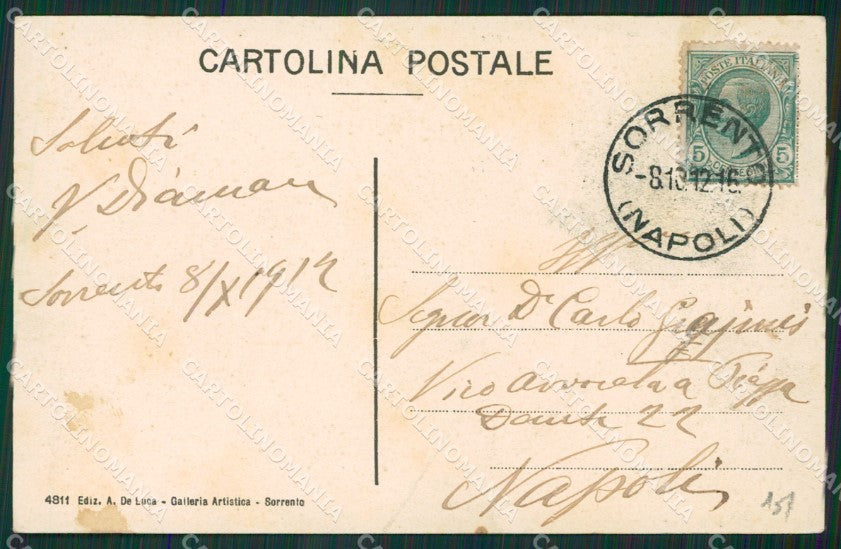 CARTOLINA POSTALE
POSTE ITALIANE
5 5
SORRENTO
-8.10.12.16.
(NAPOLI)
Saluti
Sorrento 8/X 1912
Signor Dr Carlo
Vico Piazza
Dante 22
Napoli
4811 Ediz. A. De Luca - Galleria Artistica - Sorrento
151
CARTOLINOMANIA